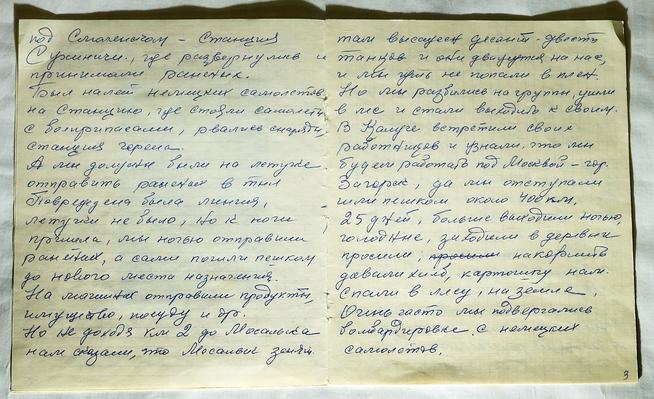 под Смоленском – Станция
Сухиничи, где развернулись и
принимали раненых.
Был налет немецких самолетов
на Станцию, где стояли самолеты
с боеприпасами, рвались снаряды,
станция горела.
А мы должны были на летучке
отправить раненых в тыл
Повреждена была линия,
летучки не было, но к ночи
пришла, мы ночью отправили
раненых, а сами пошли пешком
до нового места назначения.
На машинах отправили продукты,
имущество, посуду и др.
Но не доходя км 2 до Мосальска
нам сказали, что Мосальск занят.
там высажен десант - двести
танцов и они движутся на нас,
и мы чуть не попали в плен.
Но мы разбились на группы, ушли
в лес и стали выходить к своим.
В Калуге встретили своих
работников и узнали, что мы
будем работать под Москвой – гор.
Загорск, да мы отступали
шли пешком около 400 км,
25 дней, больше выходили ночью,
голодные, заходили в деревни
просили, просили накормить
давали хлеб, картошку нам.
Спали в лесу, на земле,
Очень часто мы подвергались
бомбардировке с немецких
самолетов.
3